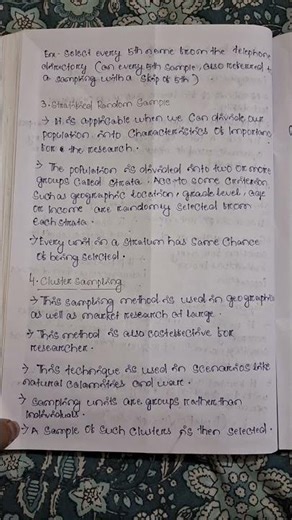 Ex:- Select every 5th name from the telephon
directory (an every 5th sample, also referred
a sampling with a skip of 5th")
3. Stratified Random Sample
→ It is applicable when we can divide our
population into characteristics of importan
for the research.
→ The pollution is divided into two or more
groups called strata. Acc to some criterion
such as geographic location, grade level, age
or income are randomy selected from
each strata.
→ Every unit in a stratum has same chance
of being selected.
4. Cluster sampling
→ This sampling method is used in geographic
as well as market research at large.
→ This method is also costeffective for
researcher.
→ This technique is used in scenarios like
natural calamities and ware.
→ sampling units are groups rather than
individuals.
→ A sample of such clusters is then selected.